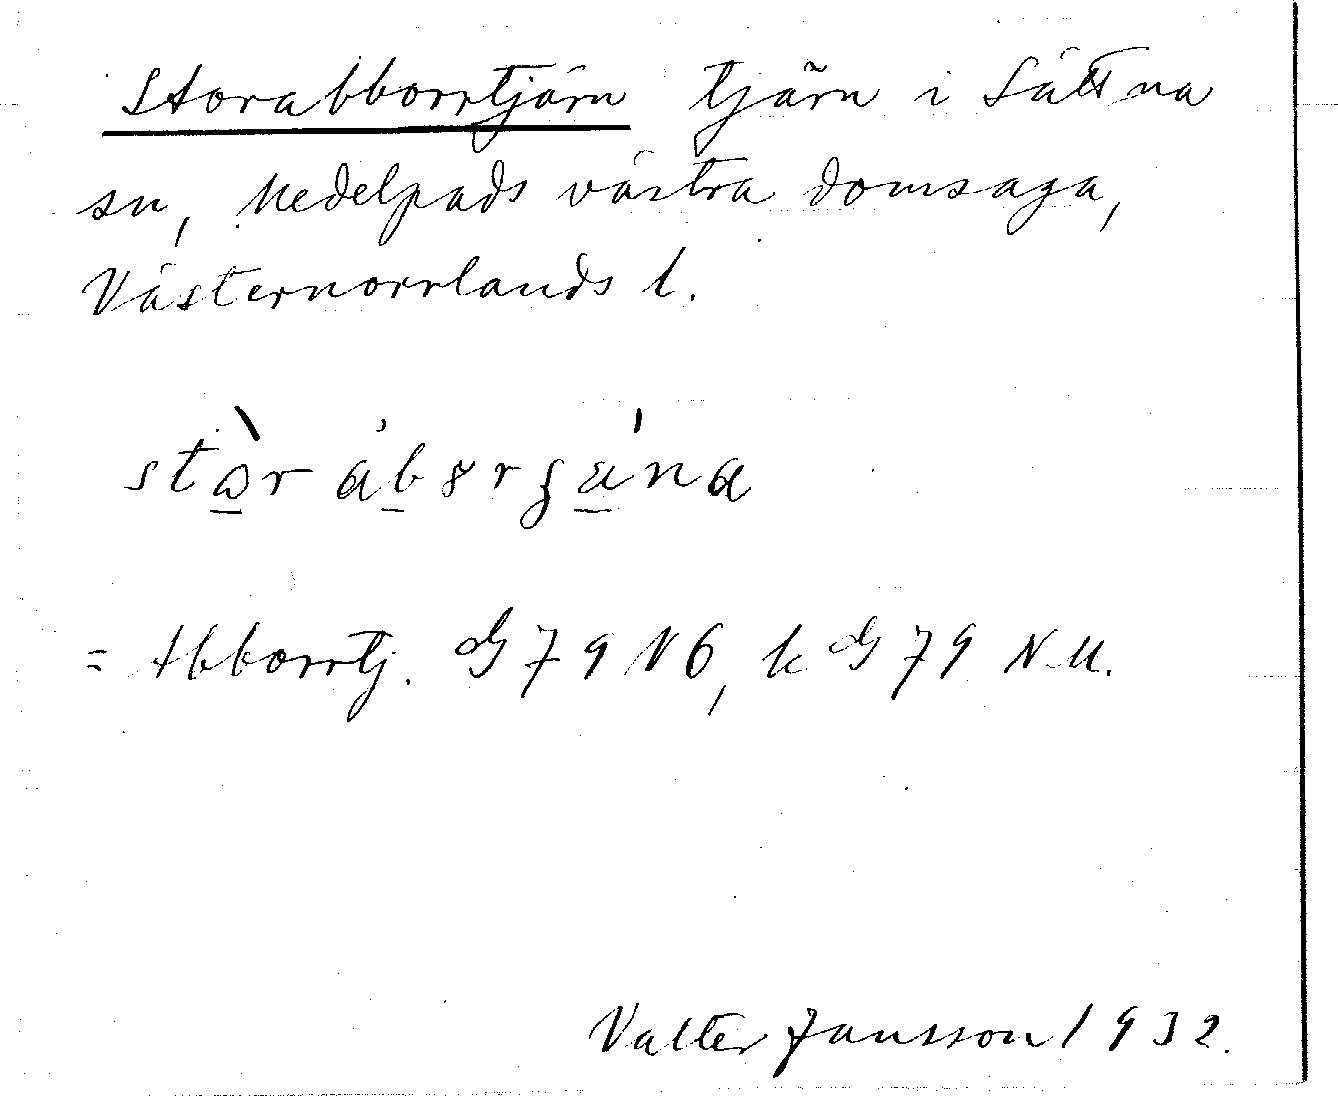 Storabborrtjärn tjärn i Sättna
sn, Medelpads västra domsaga,
Västernorrlands l.
= Abborrtj. G 79 NÖ, k G 79 N.M.
Valter Jansson 1932.